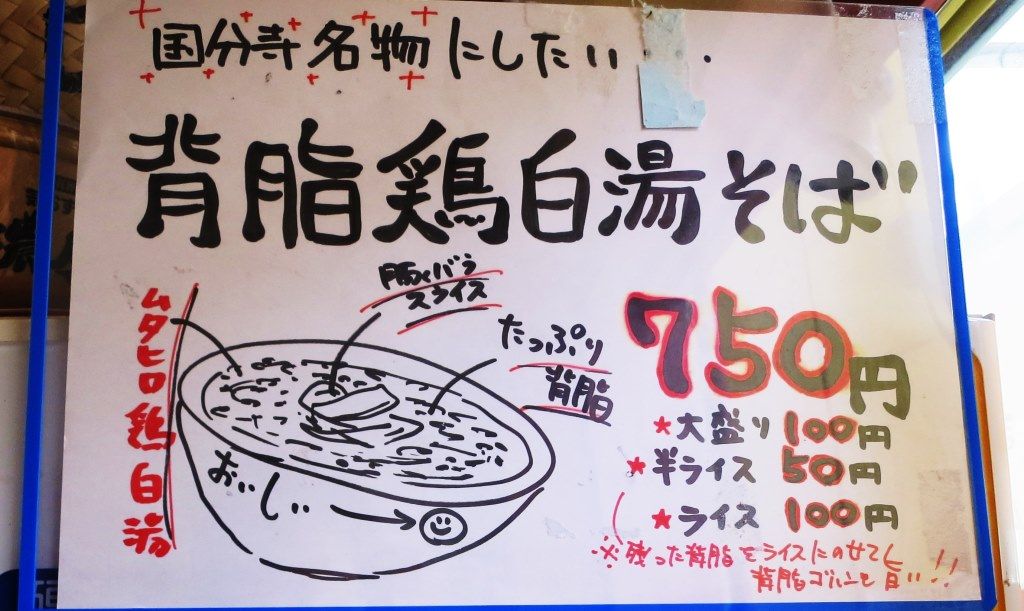 国分寺名物にしたい
背脂鶏白湯そば
豚バラ
スライス
ムタヒロ鶏白湯
たっぷり
背脂
おいしい
750円
★大盛り 100円
★半ライス 50円
★ライス 100円
※残った背脂をライスにのせて
背脂ゴハンも旨い!!